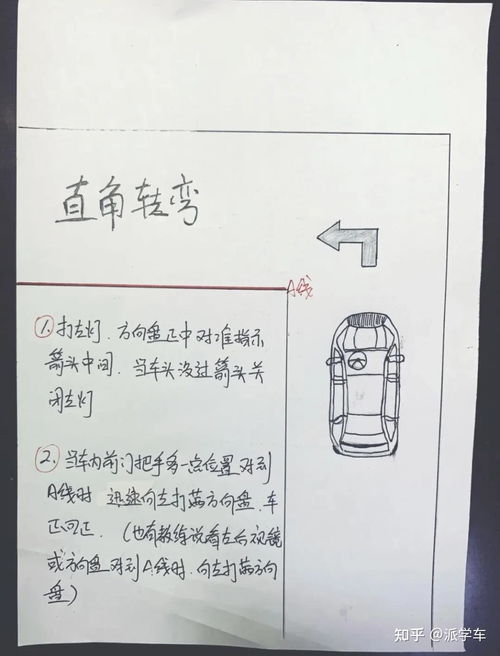 直角转弯
A线
1. 打左灯、方向盘正中对准指示
箭头中间、当车头没过箭头关
闭左灯
2. 当车内前门把手多一点位置对到
A线时 迅速向左打满方向盘、车
正回正. (也有教练说看左后视镜
或方向盘对到A线时、向左打满方向
盘)
知乎 @派学车